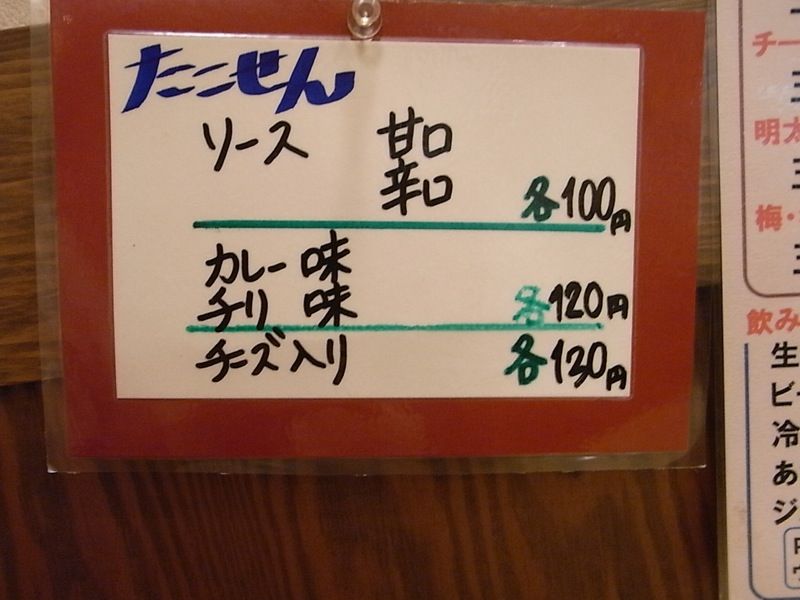 たこせん
ソース 甘口
辛口 各100円
カレー味
チリ味 各120円
チーズ入り 各130円
チー
明太
梅・
飲み
生
ビー
冷
あ
ジ